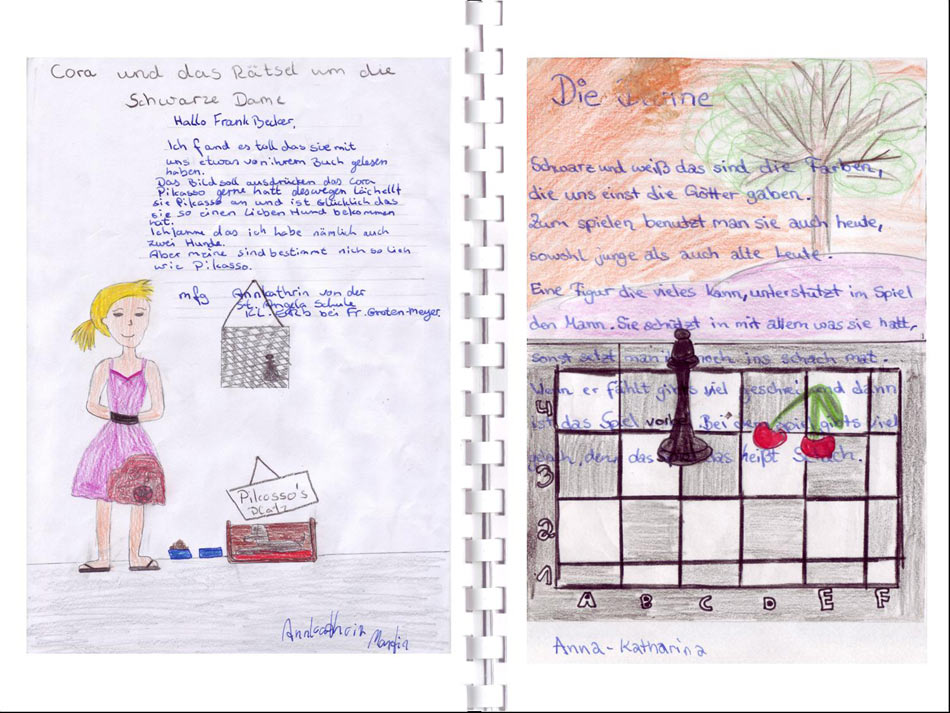 Cora und das Rätsel um die
Schwarze Dame
Hallo Frank Becker,
Ich fand es toll das sie mit
uns etwas von ihrem Buch gelesen
haben.
Das Bild soll ausdrücken das Cora
Pikasso gerne hatt deswegen lächellt
sie Pikasso an und ist glücklich das
sie so einen lieben Hund bekommen
hat.
Ich kenne das ich habe nämlich auch
zwei Hunde.
Aber meine sind bestimmt nich so lieb
wie Pikasso.
mfg Annkathrin von der
St. Angela Schule
Kl. bei Fr. Groten-Meyer.
Pikasso's
Platz
Annkathrin
Die
Schwarz und weiß das sind die Farben,
die uns einst die Götter gaben.
Zum spielen benutzt man sie auch heute,
sowohl junge als auch alte Leute.
Eine Figur die vieles kann, unterstützt im Spiel
den Mann. Sie schützt in mit allem was sie hatt,
sonst setzt man noch ins schach mat.
Wenn er fählt gibts viel geschrei und dann
ist das Spiel Bei dem Spiel gibts viel
das heißt Schach.
4
3
2
1
A B C D E F
Anna-Katharina